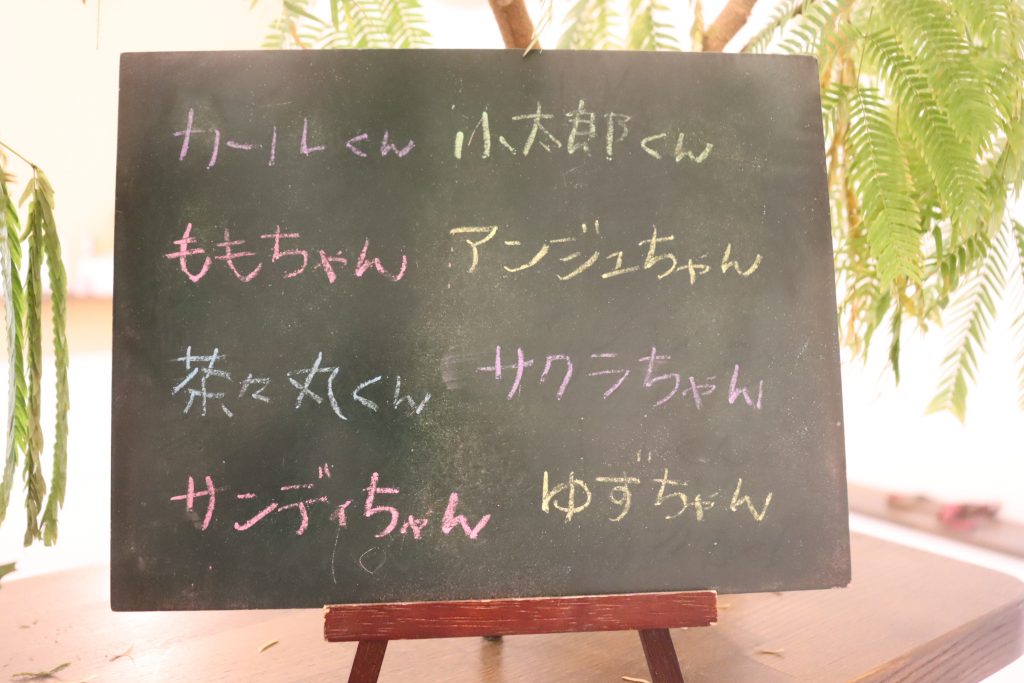 カールくん 小太郎くん
ももちゃん アンジュちゃん
茶々丸くん サクラちゃん
サンディちゃん ゆずちゃん